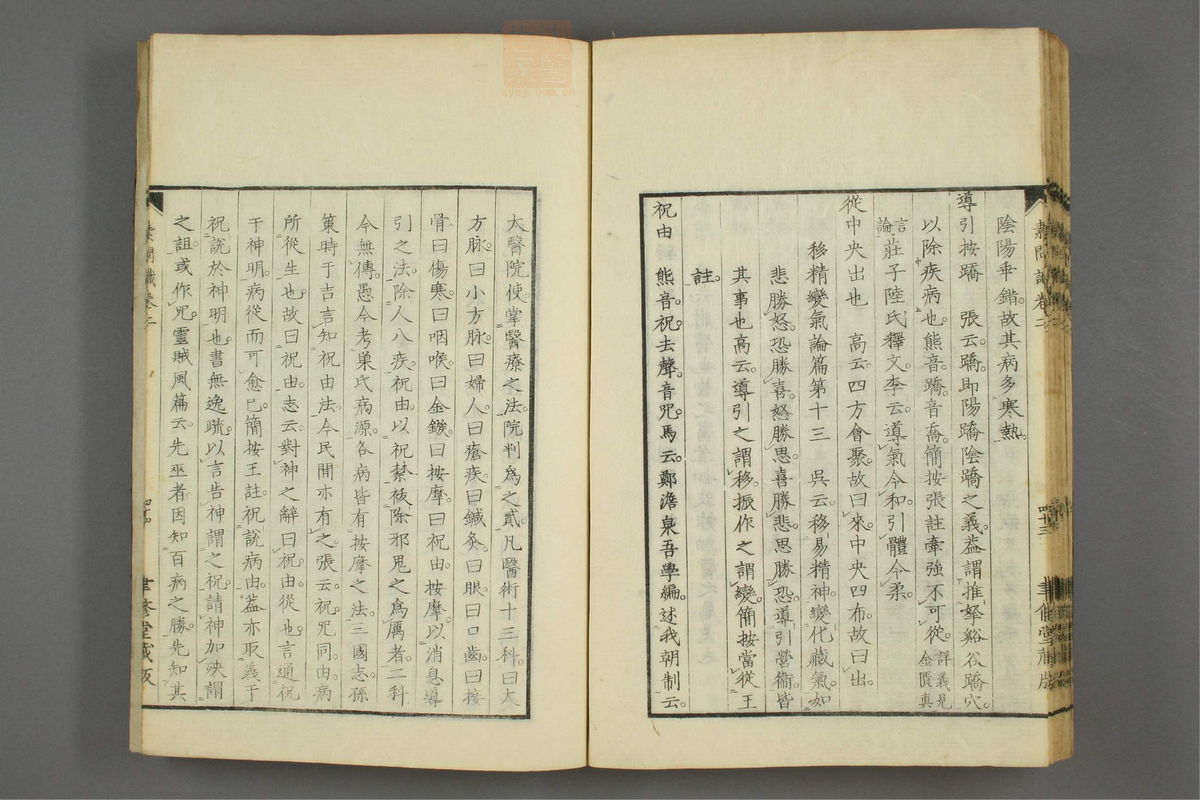 素問識卷二
四十三
聿修堂藏版
陰陽乖錯。故其病多寒熱。
導引按蹻　張云。蹻即陽蹻陰蹻之義。蓋謂推拏谿谷蹻穴。
以除疾病也。熊音。蹻音喬。簡按張註牽強不可從。詳義見金匱真
言論莊子陸氏釋文。李云。導氣令和。引體令柔。
從中央出也　高云。四方會聚。故曰來。中央四布。故曰出。
移精變氣論篇第十三　吳云。移易精神。變化藏氣。如
悲勝怒。恐勝喜。怒勝思。喜勝悲。思勝恐。導引營衛。皆
其事也。高云。導引之謂移。振作之謂變。簡按當從王
註。
祝由　熊音。祝。去聲。音咒。馬云。鄭澹泉吾學編。述我朝制云。
太醫院使。掌醫療之法。院判為之貳。凡醫術十三科。曰大
方脉。曰小方脉。曰婦人。曰瘡疾。曰鍼灸。曰眼。曰口齒。曰接
骨。曰傷寒。曰咽喉。曰金鏃。曰按摩。曰祝由。按摩。以消息導
引之法。除人八疾。祝由。以祝禁祓除邪鬼之為厲者。二科
今無傳。愚今考巢氏病源。各病皆有按摩之法。三國志。孫
策時于吉言知祝由法。今民間亦有之。張云。祝咒同。由。病
所從生也。故曰祝由。志云。對神之辭曰祝。由。從也。言通祝
于神明。病從而可愈已。簡按王註。祝說病由。蓋亦取義于
祝說於神明也。書無逸疏。以言告神謂之祝。請神加殃謂
之詛。或作咒。靈賊風篇云。先巫者因知百病之勝。先知其
素問識卷二
四十四
聿修堂藏版
zysj.com.cn